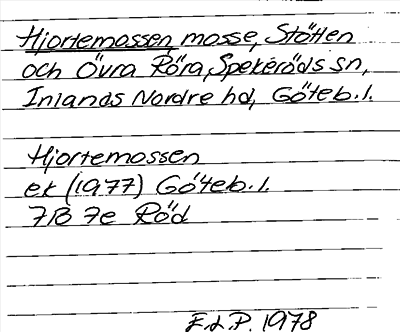 Hjortemossen, mosse, Stötten
och Övra Röra, Spekeröds sn,
Inlands Nordre hd, Göteb. l.
Hjortemossen
ek (1977) Göteb. l.
7B 7e Röd
E d. P. 1978